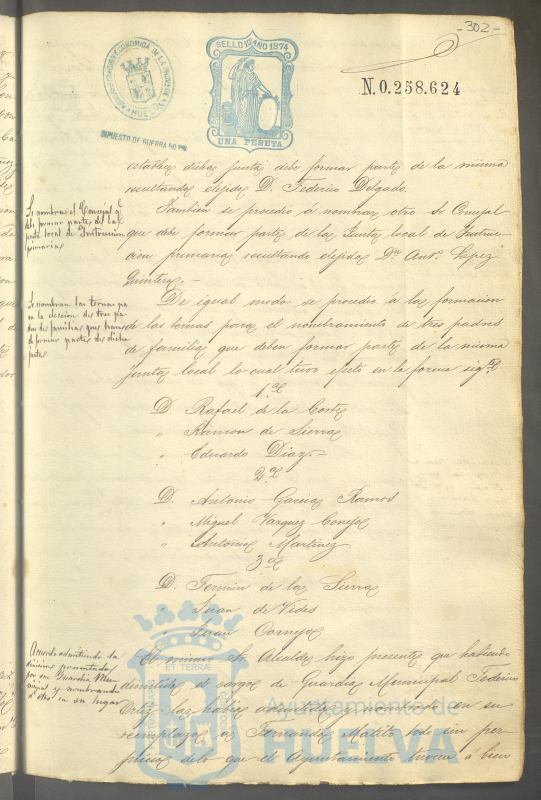 -302-
SELLO 10º AÑO 1874
UNA PESETA
IMPUESTO DE GUERRA 50
N.0.258.624
establece dicha junta debe formar parte de la misma
resultando elejido D. Federico Delgado.
Tambien se procedio á nombrar otro Sr Concejal
que debe formar parte de la Junta local de Instruc-
cion primaria resultando elejido Dn Antº Lopez
Quintero.
Se nombra el Concejal q.
debe formar parte de la
junta local de Instruccion
primaria
De igual modo se procedio á la formacion
de las ternas para el nombramiento de tres padres
de familia que deben formar parte de la misma
Junta local lo cual tuvo efecto en la forma sigte
Se nombran las ternas pa
ra la eleccion de tres pa
dres de familia que han
de formar parte de dicha
junta.
1ª
D. Rafael de la Corte
" Ramon de Sierra
" Eduardo Diaz.
2ª
D. Antonio Garcia Ramos
" Miguel Vazquez Conejo
" Antonio Martinez
3ª
D. Fermin de la Sierra
" Juan de Vides
" Juan Cornejo
El mismo Sr. Alcalde hizo presente que habiendo
dimitido el cargo de Guardia Municipal Federico
Ortiz la habia aceptado y nombrado en su
reemplazo a Fernando Matito todo sin per-
juicio de lo que el Ayuntamiento tuviera á bien
Acuerdo admitiendo la
dimision presentada
por un Guardia Mu-
nicipal y nombrando
á otro en su lugar
ET TERRA
Ayuntamiento de
HUELVA